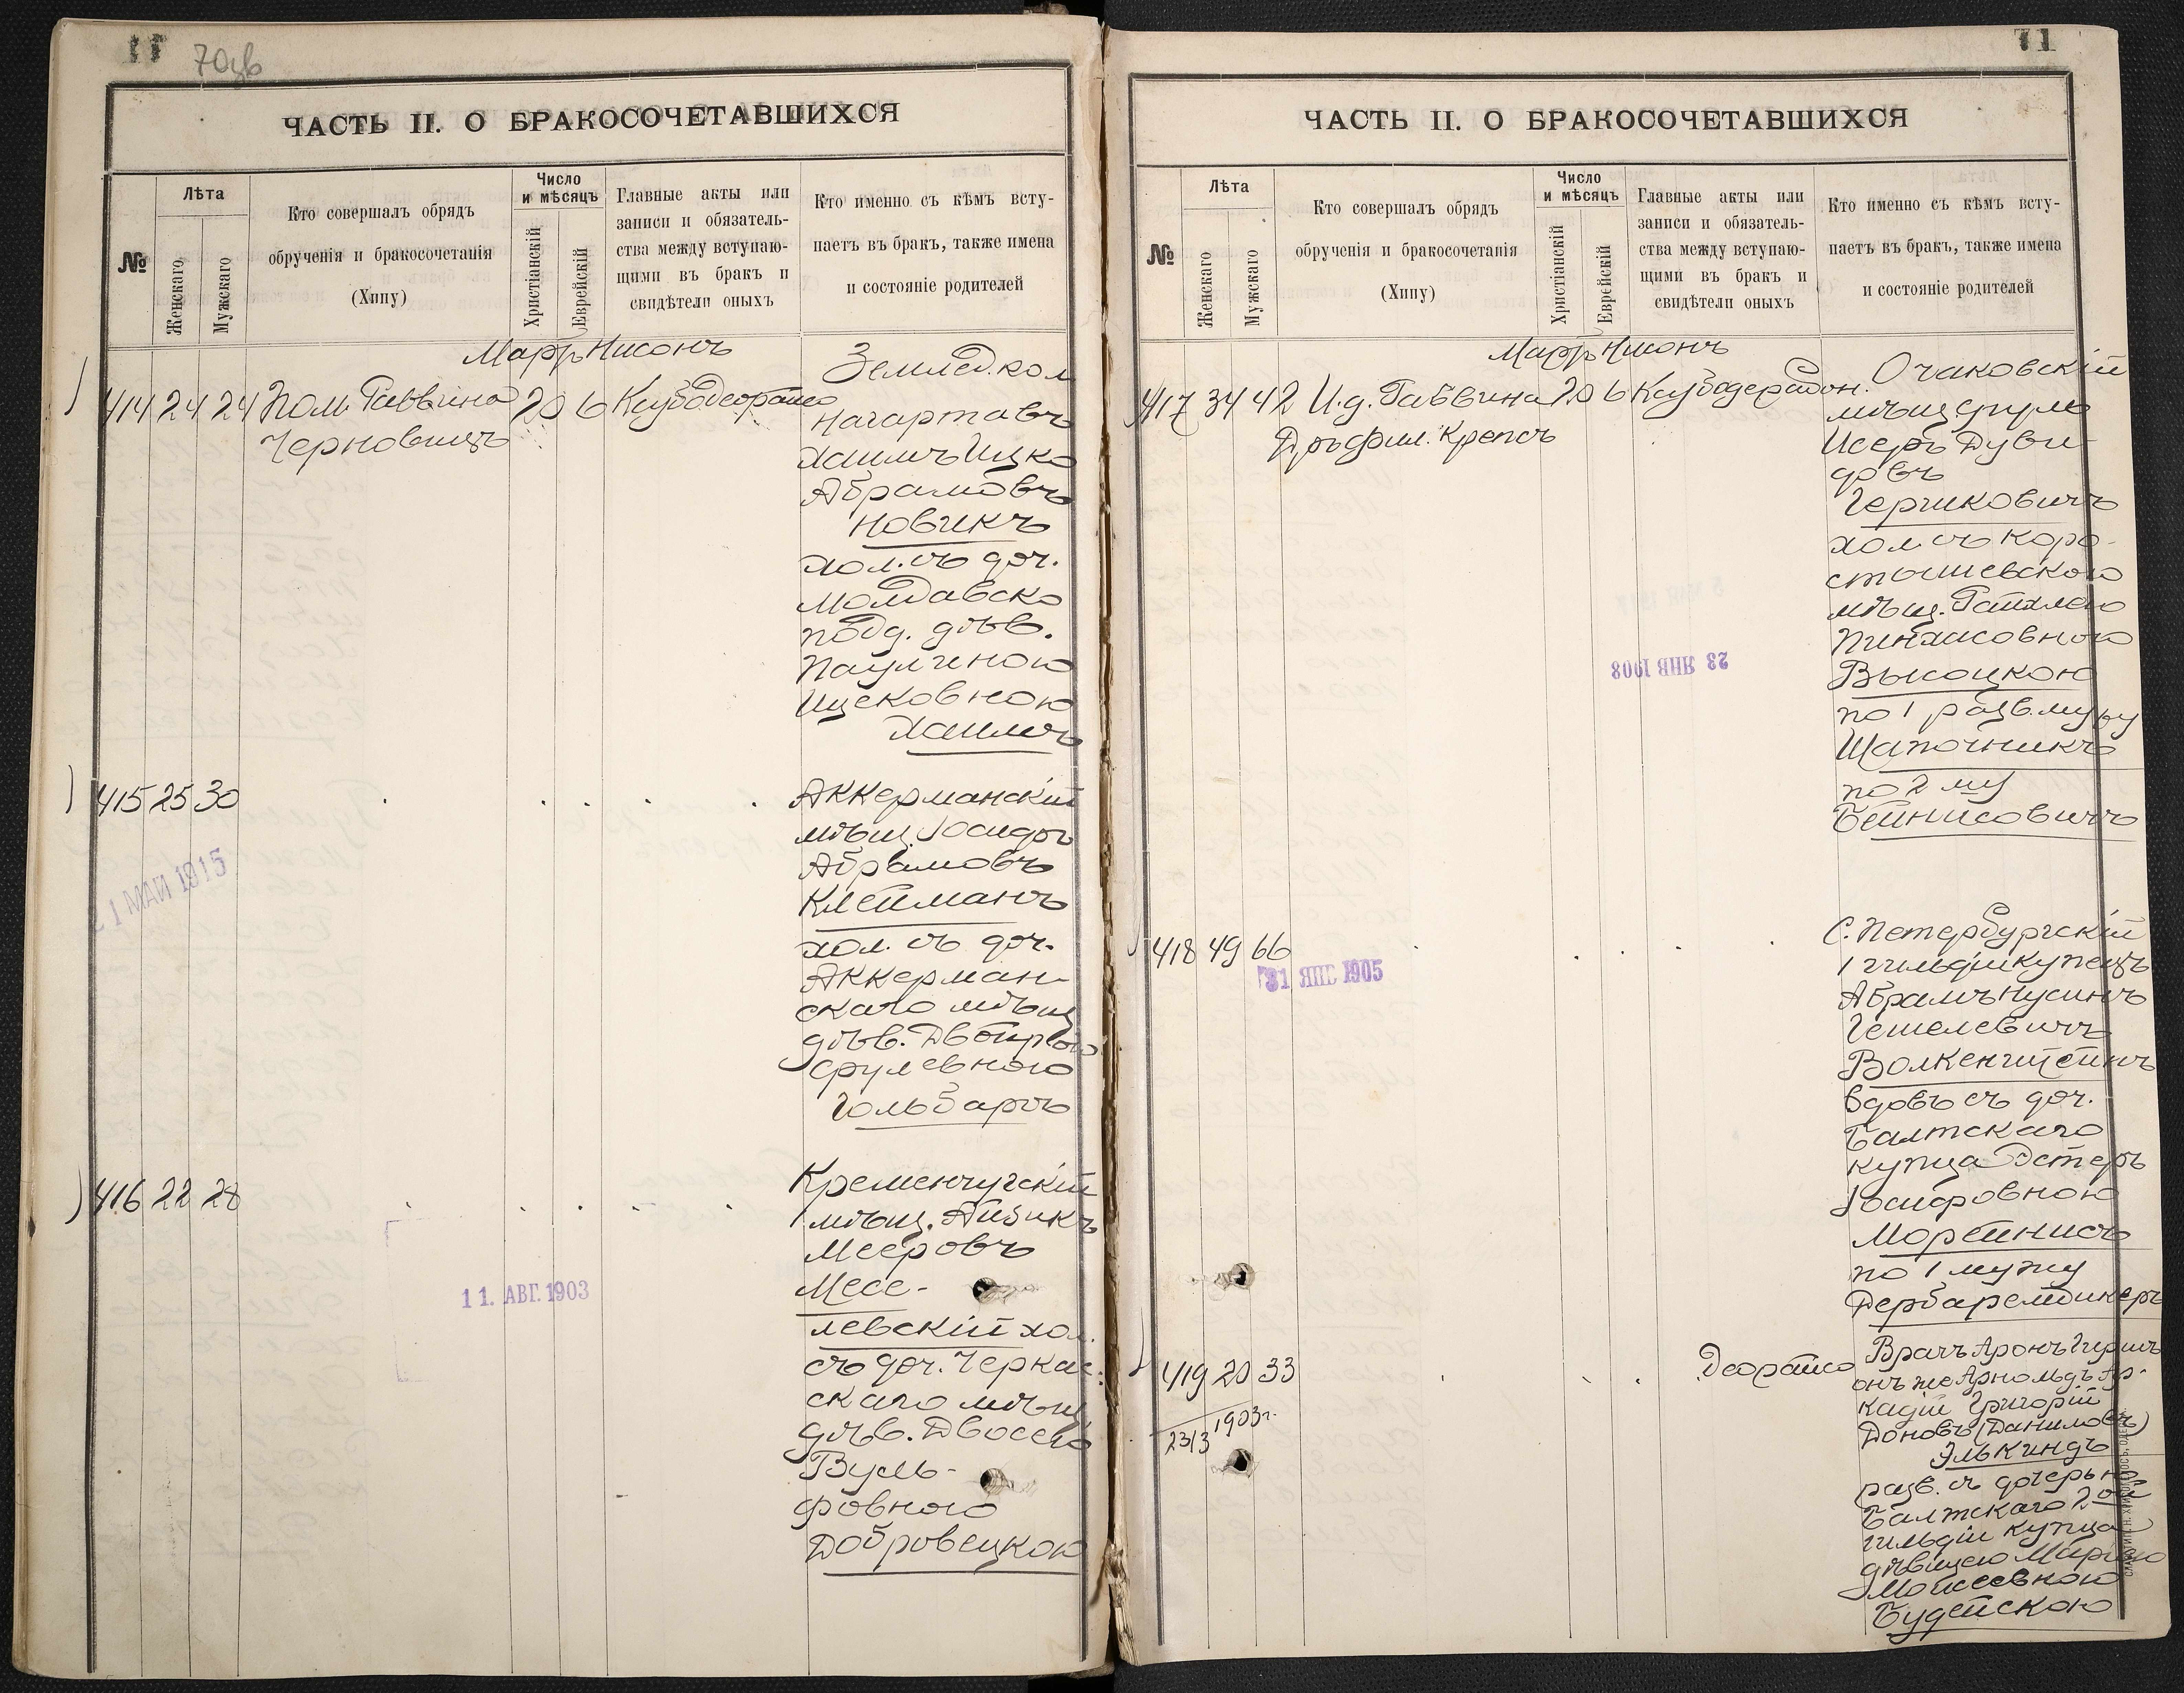 70об
ЧАСТЬ II. О БРАКОСОЧЕТАВШИХСЯ
№
Лѣта
Женскаго
Мужскаго
Кто совершалъ обрядъ
обрученія и бракосочетанія
(Хипу)
Число
и мѣсяцъ
Христіанскій
Еврейскій
Главные акты или
записи и обязатель-
ства между вступаю-
щими въ бракъ и
свидѣтели оныхъ
Кто именно съ кѣмъ всту-
паетъ въ бракъ, также имена
и состояніе родителей
Мартъ Нисонъ
414 24 24 Пом. Раввина 20 6
Черновицъ
Землед. кол.
Нагартавъ
Хаимъ Ицко
Абрамовъ
Новикъ
хол. съ доч.
Молдавско
подд. дѣв.
Паулиною
Ицековною
Хаимъ
415 25 30
21 МАЙ 1915
Аккерманскій
мѣщ. Іосифъ
Абрамовъ
Клейманъ
хол. съ доч.
Аккерман-
скаго мѣщ
дѣв. Двойрою
Срулевною
Гольбартъ
416 22 28
11. АВГ. 1903
Кременчугскій
мѣщ. Айзикъ
Мееровъ
Месе-
левскій хол.
съ доч. Черкас-
скаго мѣщ
дѣв. Двоссею
Вуль-
фовною
Добровецкою
71
ЧАСТЬ II. О БРАКОСОЧЕТАВШИХСЯ
№
Лѣта
Женскаго
Мужскаго
Кто совершалъ обрядъ
обрученія и бракосочетанія
(Хипу)
Число
и мѣсяцъ
Христіанскій
Еврейскій
Главные акты или
записи и обязатель-
ства между вступаю-
щими въ бракъ и
свидѣтели оныхъ
Кто именно съ кѣмъ всту-
паетъ въ бракъ, также имена
и состояніе родителей
Мартъ Нисонъ
417 34 42 И. д. Раввина 20 6
Дръ фил. Крепсъ
23 ЯНВ 1908
Очаковскій
мѣщ Сруль
Исеръ Дуви-
довъ
Гершковичъ
хол. съ коро-
стышевскою
мѣщ. Рахлею
Пинхасовною
Высоцкою
по 1 разв. мужу
Шапочникъ
по 2 му
Бейнисовичъ
418 49 66
31 ЯНВ 1905
С. Петербургскій
1 гильдіи купецъ
Абрамъ Нусинъ
Гешелевичъ
Волкенштейнъ
вдовъ съ доч.
Балтскаго
купца Эстеръ
Іосифовною
Морейнисъ
по 1 мужу
Дербаремдикеръ
419 20 33
2313 1903 г.
Врачъ Аронъ Гершъ
онъ же Арнольдъ Ар-
кадій Григорій
Доновъ (Даниловъ)
Элькиндъ
разв. съ дочерью
Балтскаго 2ой
гильдіи купца
дѣвицею Маріею
Моисеевною
Будейскою